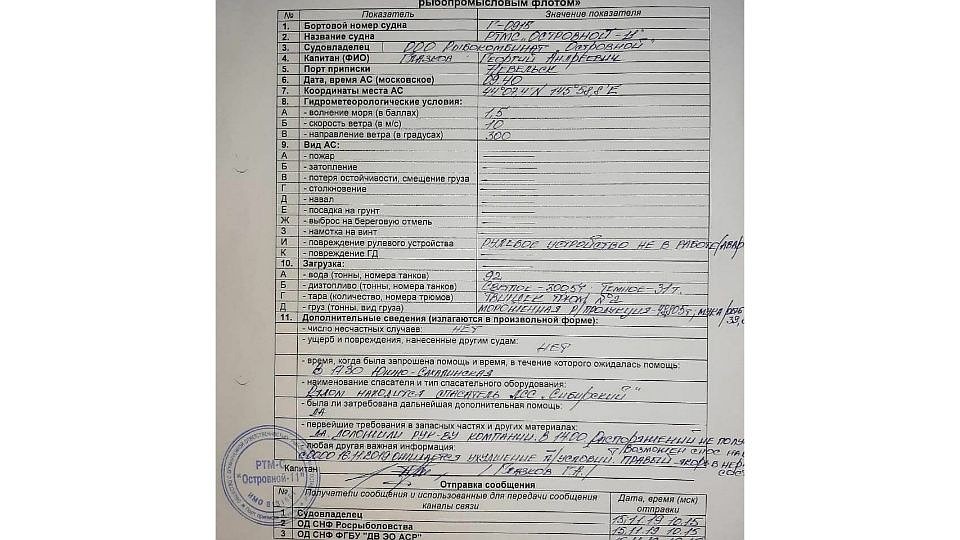 рыбопромысловым флотом»
№ Показатель Значение показателя
1. Бортовой номер судна Г-0918
2. Название судна РТМС „ОСТРОВНОЙ-11"
3. Судовладелец ООО РЫБОКОМБИНАТ „Островной"
4. Капитан (ФИО) Глазков Георгий Андреевич
5. Порт приписки Невельск
6. Дата, время АС (московское) 09 40
7. Координаты места АС 44°07,4'N 145°58,8'E
8. Гидрометеорологические условия:
А - волнение моря (в баллах) 1,5
Б - скорость ветра (в м/с) 10
В - направление ветра (в градусах) 300
9. Вид АС:
А - пожар
Б - затопление
В - потеря остойчивости, смещение груза
Г - столкновение
Д - навал
Е - посадка на грунт
Ж - выброс на береговую отмель
З - намотка на винт
И - повреждение рулевого устройства РУЛЕВОЕ УСТРОЙСТВО НЕ В РАБОТЕ/АВАР
К - повреждение ГД
10. Загрузка:
А - вода (тонны, номера танков) 92
Б - дизтопливо (тонны, номера танков) СВЕТЛОЕ - ТЕМНОЕ-31т.
Г - тара (количество, номера трюмов) ТРЮМ №2
Д - груз (тонны, вид груза) МОРОЖЕННАЯ Р/ПРОДУКЦИЯ
11. Дополнительные сведения (излагаются в произвольной форме):
- число несчастных случаев: НЕТ
- ущерб и повреждения, нанесенные другим судам:
НЕТ
- время, когда была запрошена помощь и время, в течение которого ожидалась помощь:
В 1730 Южно-Сахалинская
- наименование спасателя и тип спасательного оборудования:
Рядом находится спасатель „Сибирский"
- были ли затребована дальнейшая дополнительная помощь:
ДА
- первейшие требования в запасных частях и других материалах:
ДА. ДОЛОЖИЛИ РУК-ВУ КОМПАНИИ В 1400. Распоряжений не полу
- любая другая важная информация: Возможен снос на
с 0000 16.11.2019 ожидается ухудшение п/условий. Правый якорь в
Капитан / Глазков Г.А. /
РТМ-С
"Островной-11"
Отправка сообщения
№ Получатели сообщения и использованные для передачи сообщения Дата, время (мск)
каналы связи отправки
1 Судовладелец 15.11.19 10.15
2 ОД СНФ Росрыболовства 15.11.19 10.15
3 ОД СНФ ФГБУ "ДВ ЭО АСР"